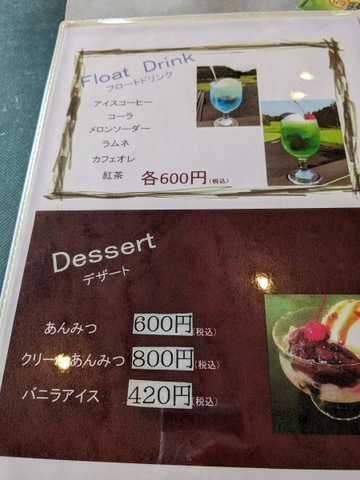 Float Drink
フロートドリンク
アイスコーヒー
コーラ
メロンソーダー
ラムネ
カフェオレ
紅茶 各600円(税込)
Dessert
デザート
あんみつ 600円(税込)
クリームあんみつ 800円(税込)
バニラアイス 420円(税込)